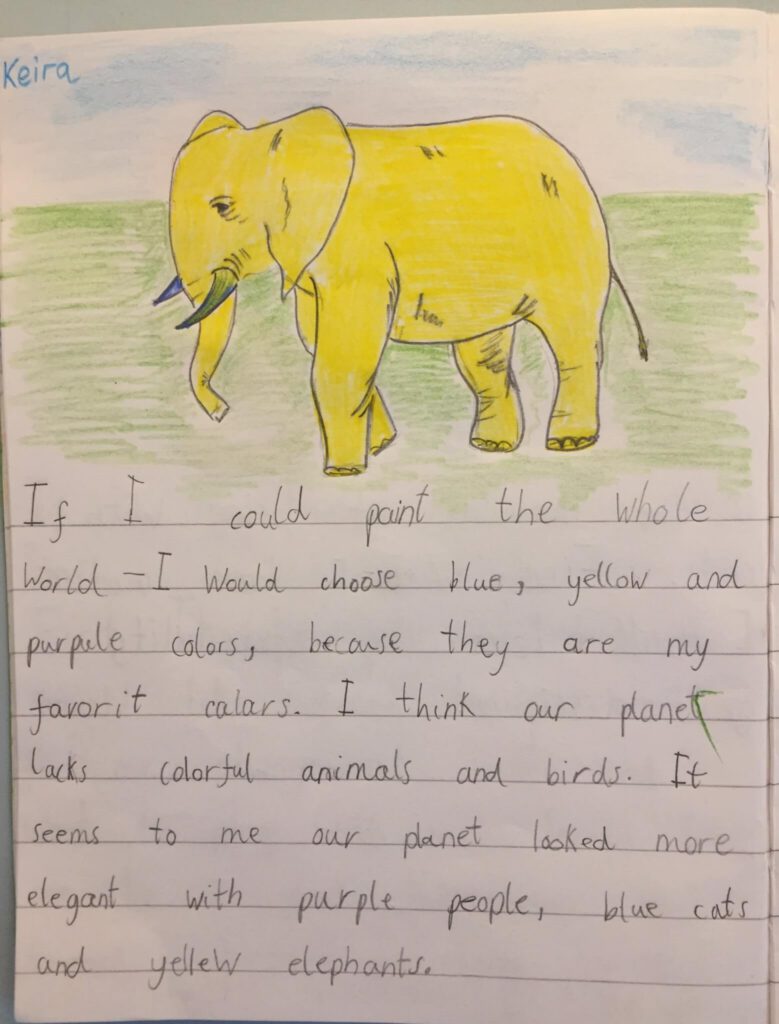 Keira
If I could paint the whole
World – I Would choose blue, yellow and
purpule colors, because they are my
favorit calars. I think our planet
lacks colorful animals and birds. It
seems to me our planet looked more
elegant with purple people, blue cats
and yellew elephants.